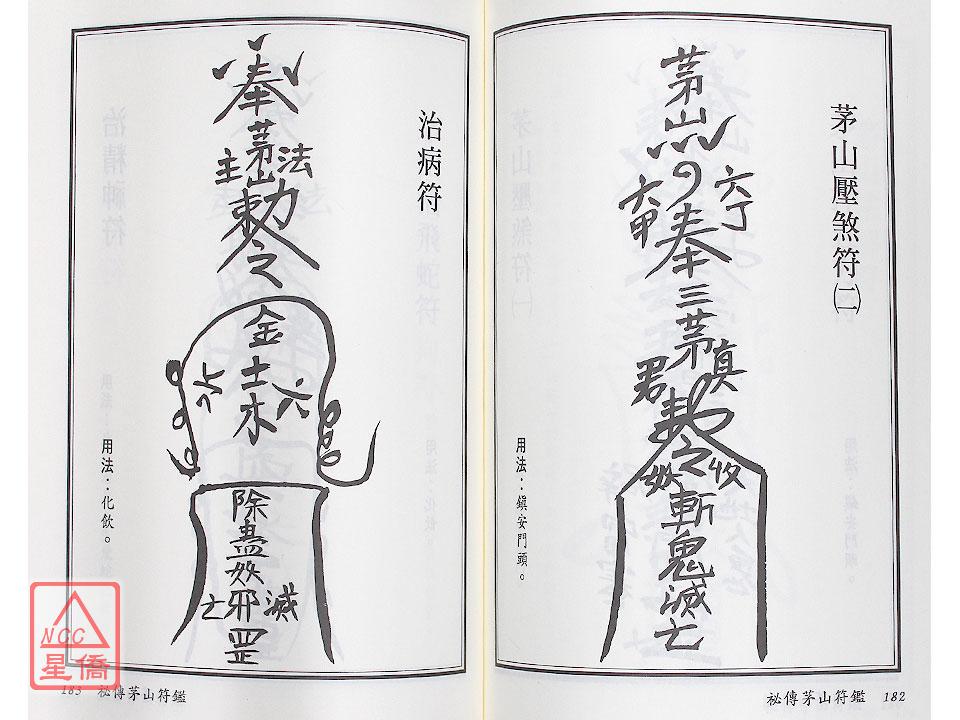 茅山壓煞符㈡
茅山
六丁
六甲
奉
三茅真君
敕令
收妖
斬鬼滅亡
用法：鎮安門頭。
祕傳茅山符鑑 182
治病符
奉
茅山法主
勅令
金土木
六
除蠱妖邪罡
滅亡
用法：化飲。
183 祕傳茅山符鑑
NCC
星僑